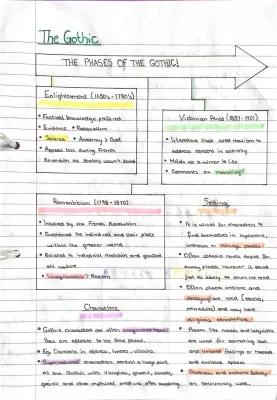 The Gothic
THE PHASES OF THE GOTHIC!
Enlightenment (1680's - 1790's)
• Factual knowledge preferred
• Evidence • Rationalism
• Science • Anatomy & God
• Appeal lost during French
Revolution as society wasn't
Victorian Period (1837-1901)
• Literature that used realism to
address concerns in
• Holds up a mirror to life
• Comments on morality!
Romanticism (1798 - 1870)
• Inspired by the French Revolution
• Questioned the individual and their place
within the greater world
• Related to industrial revolution and glorified
nature
• Imagination > Reason
Setting
• It is usual for characters to
find themselves in mysterious,
unknown or strange places!
• Often classic novels
away places however it could
just as easily be
• Often places ancient and
decaying are used (castles,
and may have
religious connotations.
• Places like mazes and labyrinths
are used for something lost
and unused. Settings or hazards
and enclosed spaces.
• Darkness and extreme
are consistently used.
Characters
• Gothic characters are often exaggerated types
that are
• Eg. Damsels in distress, heroes, villains.
• Supernatural characters
of the Gothic with Vampires, ghosts, ghouls,
giants and other mythical